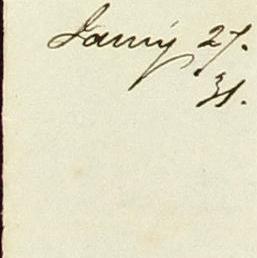 Jan'y 27.
31.